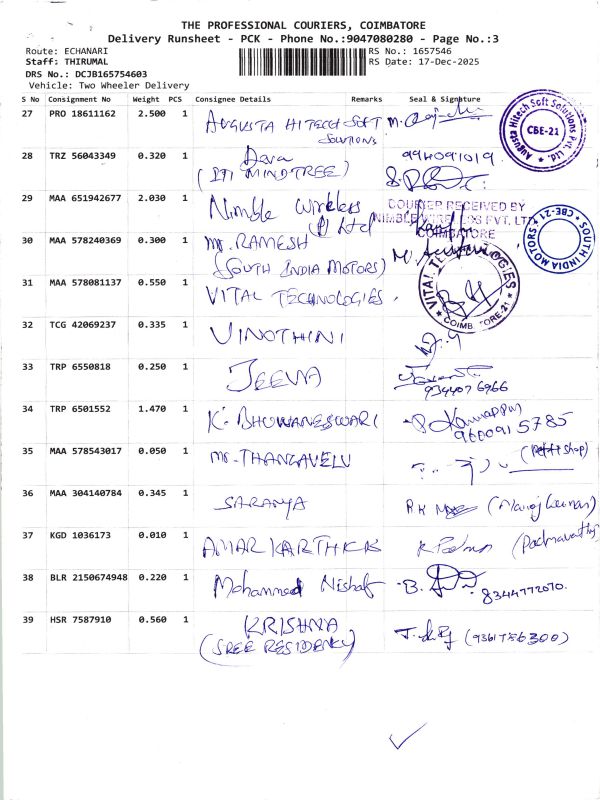 THE PROFESSIONAL COURIERS, COIMBATORE
Delivery Runsheet - PCK - Phone No.:9047080280 - Page No.:3
Route: ECHANARI RS No.: 1657546
Staff: THIRUMAL RS Date: 17-Dec-2025
DRS No.: DCJB165754603
Vehicle: Two Wheeler Delivery
S No Consignment No Weight PCS Consignee Details Remarks Seal & Signature
27 PRO 18611162 2.500 1 AUGUSTA HITECH SOFT SOLUTIONS
Augusta Hitech Soft Solutions Pvt. Ltd. CBE-21
28 TRZ 56043349 0.320 1 Deva
(LTI MINDTREE)
29 MAA 651942677 2.030 1 Nimble Wireless (P) Ltd
COURIER RECEIVED BY
NIMBLE WIRELESS PVT. LTD
COIMBATORE
30 MAA 578240369 0.300 1 Mr. RAMESH
(SOUTH INDIA MOTORS)
SOUTH INDIA MOTORS CBE-21
31 MAA 578081137 0.550 1 VITAL TECHNOLOGIES.
VITAL TECHNOLOGIES COIMBATORE-21
32 TCG 42069237 0.335 1 VINOTHINI
33 TRP 6550818 0.250 1 JEEVA
9344076966
34 TRP 6501552 1.470 1 K. BHUWANESWARI
9600915785
35 MAA 578543017 0.050 1 Mr. THANGAVELU
36 MAA 304140784 0.345 1 SARANYA
37 KGD 1036173 0.010 1 AMAR KARTHICK
38 BLR 2150674948 0.220 1 Mohammed
8344772070.
39 HSR 7587910 0.560 1 KRISHNA
(SREE RESIDENCY)